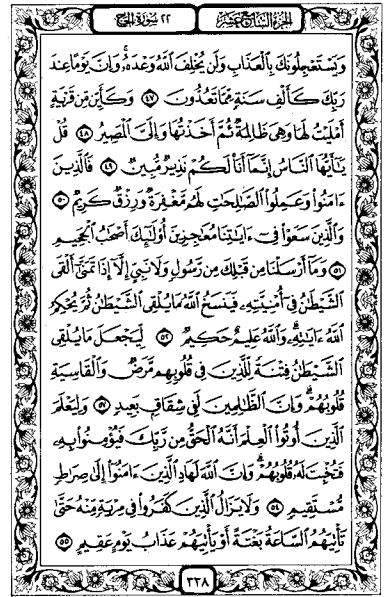 الجزء السابع عشر
٢٢ سورة الحج
وَيَسْتَعْجِلُونَكَ بِٱلْعَذَابِ وَلَن يُخْلِفَ ٱللَّهُ وَعْدَهُۥ ۚ وَإِنَّ يَوْمًا عِندَ
رَبِّكَ كَأَلْفِ سَنَةٍ مِّمَّا تَعُدُّونَ ٤٧ وَكَأَيِّن مِّن قَرْيَةٍ
أَمْلَيْتُ لَهَا وَهِىَ ظَالِمَةٌ ثُمَّ أَخَذْتُهَا وَإِلَىَّ ٱلْمَصِيرُ ٤٨ قُلْ
يَٰٓأَيُّهَا ٱلنَّاسُ إِنَّمَآ أَنَا۠ لَكُمْ نَذِيرٌ مُّبِينٌ ٤٩ فَٱلَّذِينَ
ءَامَنُوا۟ وَعَمِلُوا۟ ٱلصَّٰلِحَٰتِ لَهُم مَّغْفِرَةٌ وَرِزْقٌ كَرِيمٌ ٥٠
وَٱلَّذِينَ سَعَوْا۟ فِىٓ ءَايَٰتِنَا مُعَٰجِزِينَ أُو۟لَٰٓئِكَ أَصْحَٰبُ ٱلْجَحِيمِ
٥١ وَمَآ أَرْسَلْنَا مِن قَبْلِكَ مِن رَّسُولٍ وَلَا نَبِىٍّ إِلَّآ إِذَا تَمَنَّىٰٓ أَلْقَى
ٱلشَّيْطَٰنُ فِىٓ أُمْنِيَّتِهِۦ فَيَنسَخُ ٱللَّهُ مَا يُلْقِى ٱلشَّيْطَٰنُ ثُمَّ يُحْكِمُ
ٱللَّهُ ءَايَٰتِهِۦ ۗ وَٱللَّهُ عَلِيمٌ حَكِيمٌ ٥٢ لِّيَجْعَلَ مَا يُلْقِى
ٱلشَّيْطَٰنُ فِتْنَةً لِّلَّذِينَ فِى قُلُوبِهِم مَّرَضٌ وَٱلْقَاسِيَةِ
قُلُوبُهُمْ ۗ وَإِنَّ ٱلظَّٰلِمِينَ لَفِى شِقَاقٍۭ بَعِيدٍ ٥٣ وَلِيَعْلَمَ
ٱلَّذِينَ أُوتُوا۟ ٱلْعِلْمَ أَنَّهُ ٱلْحَقُّ مِن رَّبِّكَ فَيُؤْمِنُوا۟ بِهِۦ
فَتُخْبِتَ لَهُۥ قُلُوبُهُمْ ۗ وَإِنَّ ٱللَّهَ لَهَادِ ٱلَّذِينَ ءَامَنُوٓا۟ إِلَىٰ صِرَٰطٍ
مُّسْتَقِيمٍ ٥٤ وَلَا يَزَالُ ٱلَّذِينَ كَفَرُوا۟ فِى مِرْيَةٍ مِّنْهُ حَتَّىٰ
تَأْتِيَهُمُ ٱلسَّاعَةُ بَغْتَةً أَوْ يَأْتِيَهُمْ عَذَابُ يَوْمٍ عَقِيمٍ ٥٥
٣٣٨